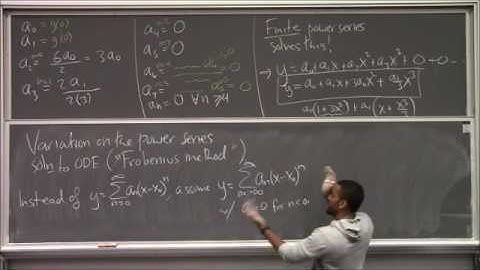 a₀ = y(0)
a₁ = y'(0)
a₂ = 6a₀/2 = 3a₀
a₃ = 2a₁/2(3)
a₄ = 0
a₅ = 0
aₙ = 0 ∀n≥4
Finite power series
solves this!
→ y = a₀ + a₁x + a₂x² + a₃x³ + 0 + 0 ...
y = a₀ + a₁x + 3a₀x² + a₁/3 x³
a₀(1+3x²) + a₁(x + x³/3)
Variation on the power series
soln to ODE ("Frobenius method")
Instead of y = ∑ aₙ(x-x₀)ⁿ, assume y = ∑ aₙ(x-x₀)ⁿ
n=0
w/ =0 for n<